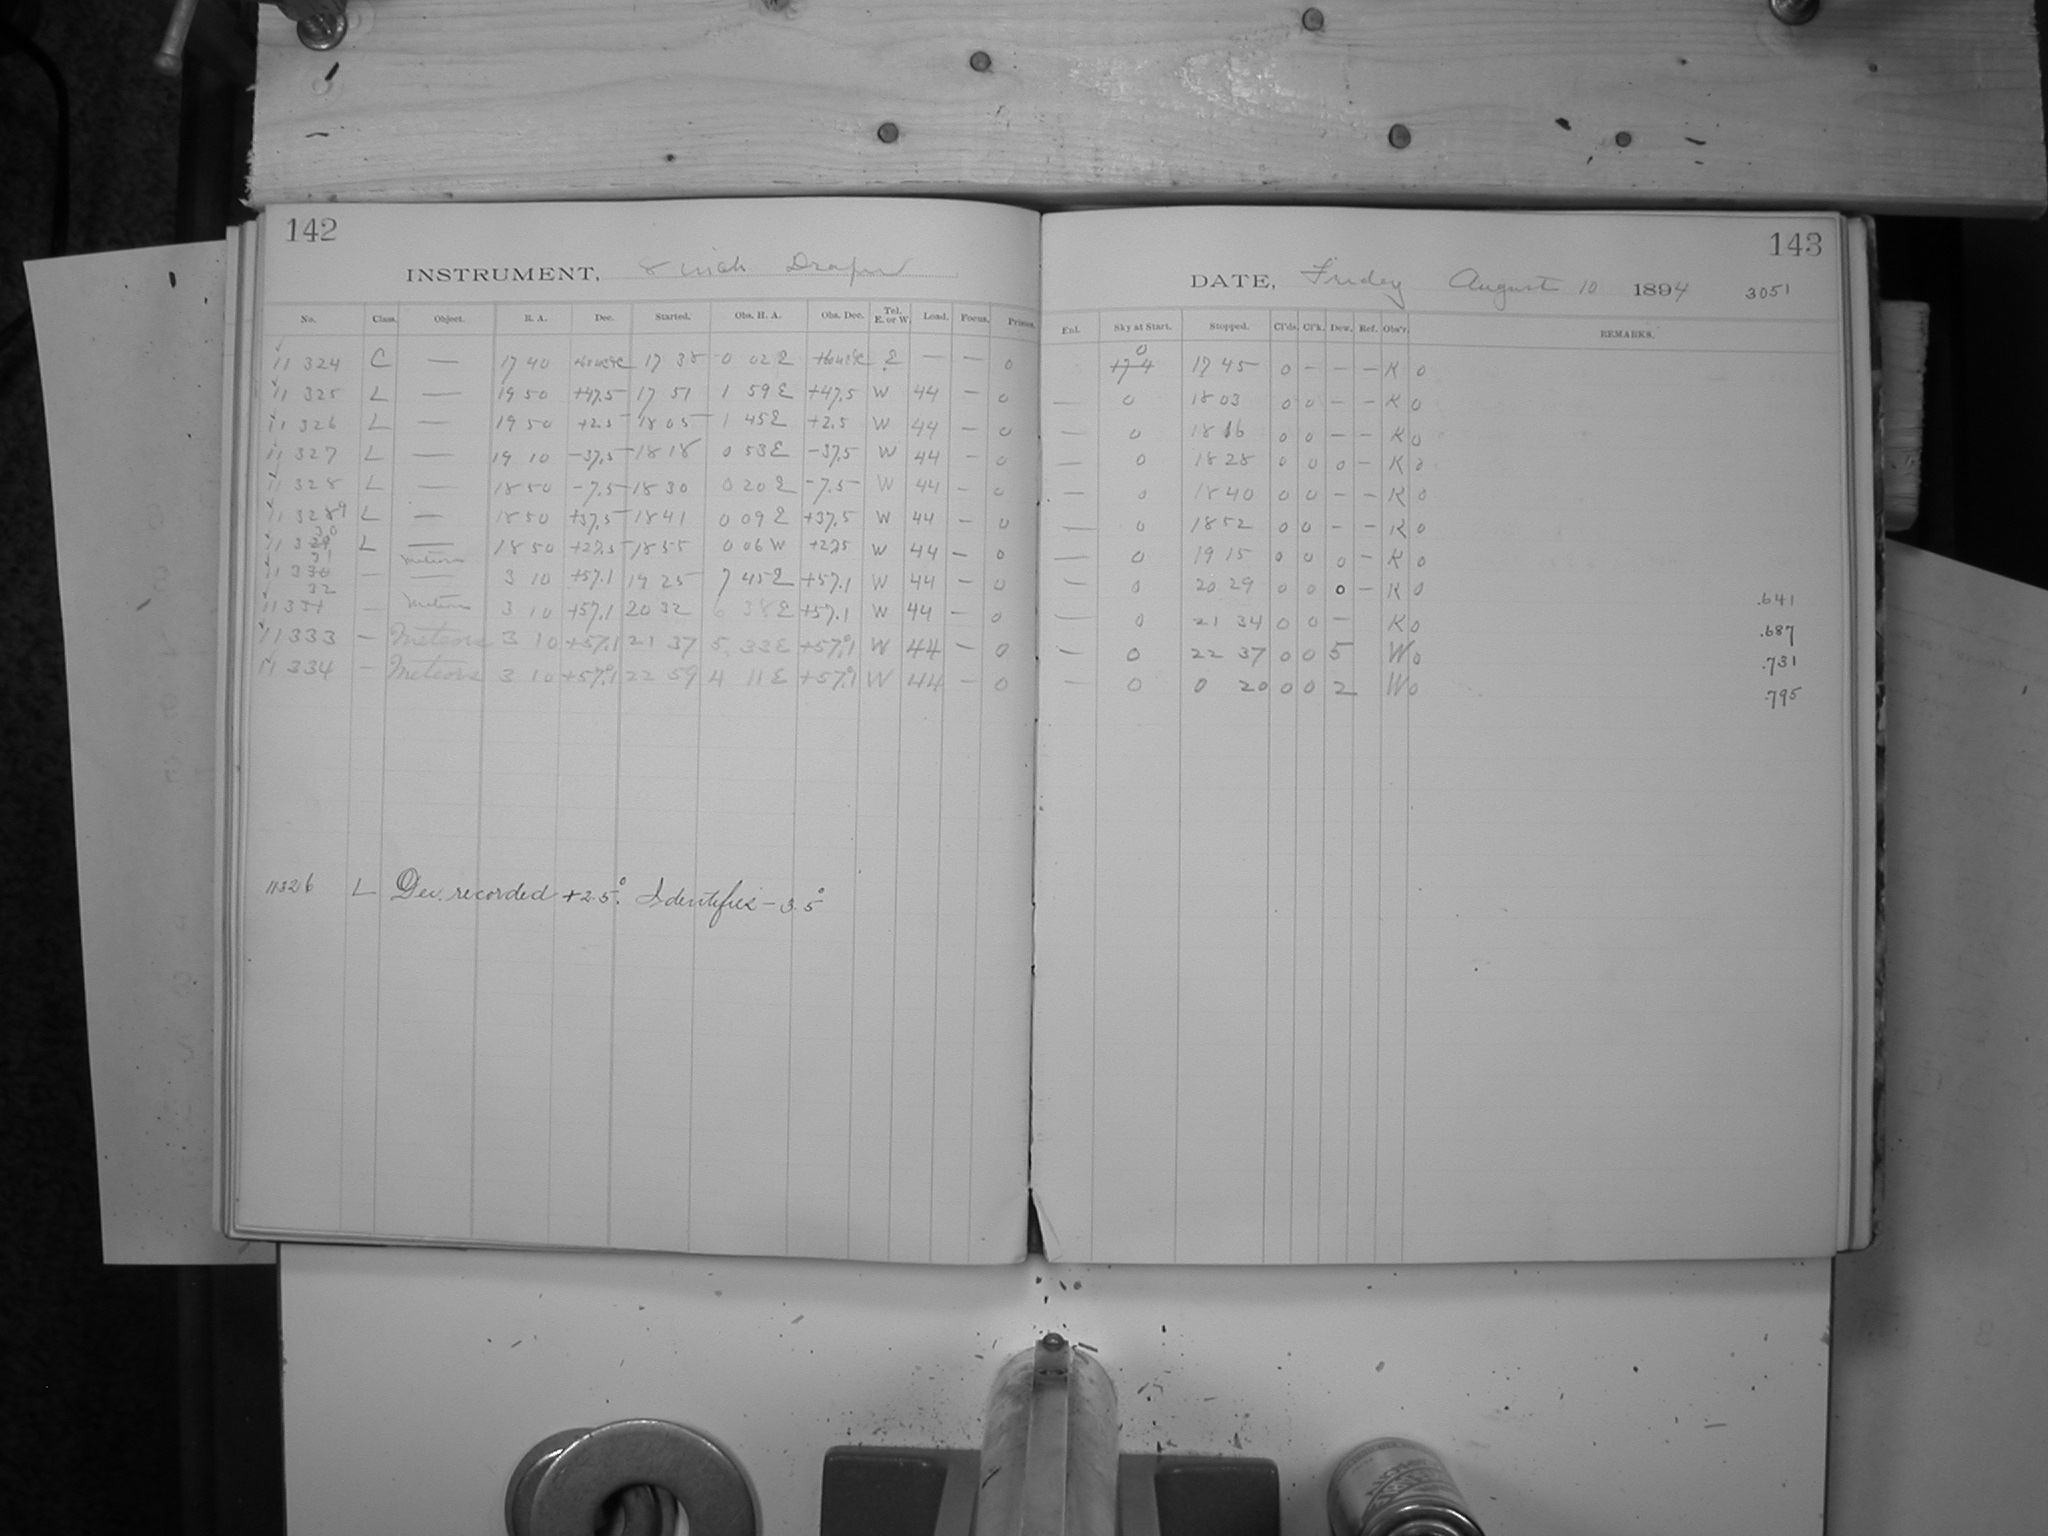 142
INSTRUMENT, 8 inch Draper
No. Class. Object. R. A. Dec. Started. Obs. H. A. Obs. Dec. Tel. E. or W. Load. Focus. Prisms.
11 324 C — 17 40 17 38 0 02 E E — — 0
11 325 L — 19 50 +47.5 17 51 1 59 E +47.5 W 44 — 0
11 326 L — 19 50 +2.5 18 05 1 45 E +2.5 W 44 — 0
11 327 L — 19 10 -37.5 18 18 0 53 E -37.5 W 44 — 0
11 328 L — 18 50 -7.5 18 30 0 20 E -7.5 W 44 — 0
11 3289 L — 18 50 +37.5 18 41 0 09 E +37.5 W 44 — 0
30
11 329 L — 18 50 +27.5 18 55 0 06 W +27.5 W 44 — 0
31 Meteors
11 330 — — 3 10 +57.1 19 25 7 45 E +57.1 W 44 — 0
32
11 331 — Meteors 3 10 +57.1 20 32 6 38 E +57.1 W 44 — 0
11 333 — Meteors 3 10 +57.1 21 37 5 33 E +57.1 W 44 — 0
11 334 — Meteors 3 10 +57.1 22 59 4 11 E +57.1 W 44 — 0
11326 L Dec. recorded +2.5°. Identifies -3.5°
143
DATE, Friday August 10 1894 3051
Enl. Sky at Start. Stopped. Cl'ds. Cl'k. Dew. Ref. Obs'r. REMARKS.
0
17 4 17 45 0 — — — K 0
— 0 18 03 0 0 — — K 0
— 0 18 16 0 0 — — K 0
— 0 18 28 0 0 0 — K 0
— 0 18 40 0 0 — — K 0
— 0 18 52 0 0 — — K 0
— 0 19 15 0 0 0 — K 0
— 0 20 29 0 0 0 — K 0 .641
— 0 21 34 0 0 — K 0 .687
— 0 22 37 0 0 5 W 0 .731
— 0 0 20 0 0 2 W 0 .795